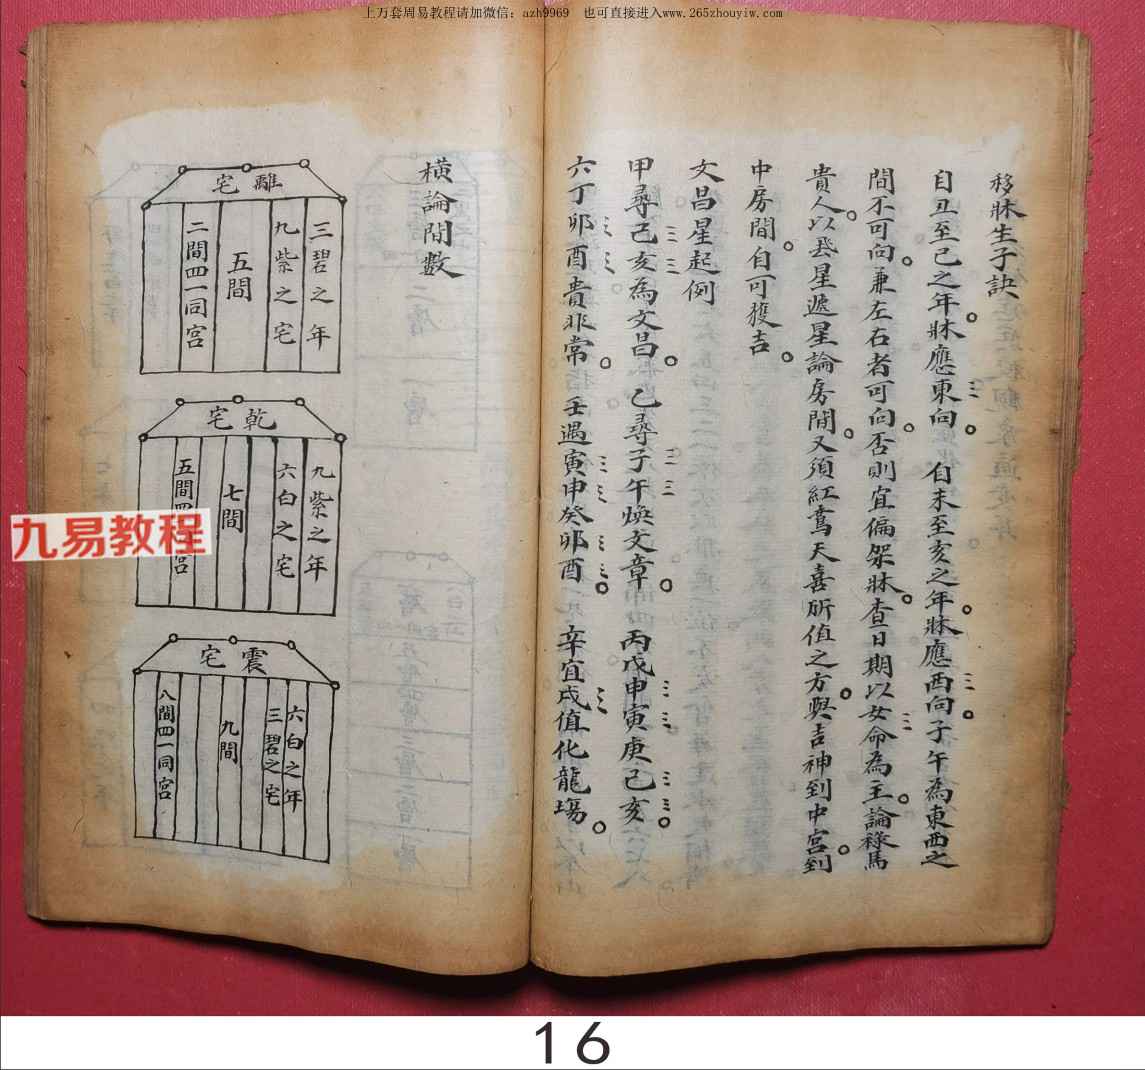 上万套周易教程请加微信：azh9969　也可直接进入www.265zhouyiw.com
移牀生子訣
自丑至巳之年牀應東向。自未至亥之年牀應西向。子午為東西之
間不可向。兼左右者可向。否則宜偏架牀。查日期以女命為主。論祿馬
貴人。以　星遞星論房間。又須紅鸞天喜所值之方。與吉神到中宮。到
中房間。自可獲吉。
文昌星起例
甲尋己亥為文昌。乙尋子午煥文章。丙戊申寅庚己亥。
六丁卯酉貴非常。壬遇寅申癸卯酉。辛宜戌值化龍塲。
橫論間數
離宅
三碧之年
九紫之宅
五間
二間四一同宮
乾宅
九紫之年
六白之宅
七間
五間四　宮
震宅
六白之年
三碧之宅
九間
八間四一同宮
九易教程
16